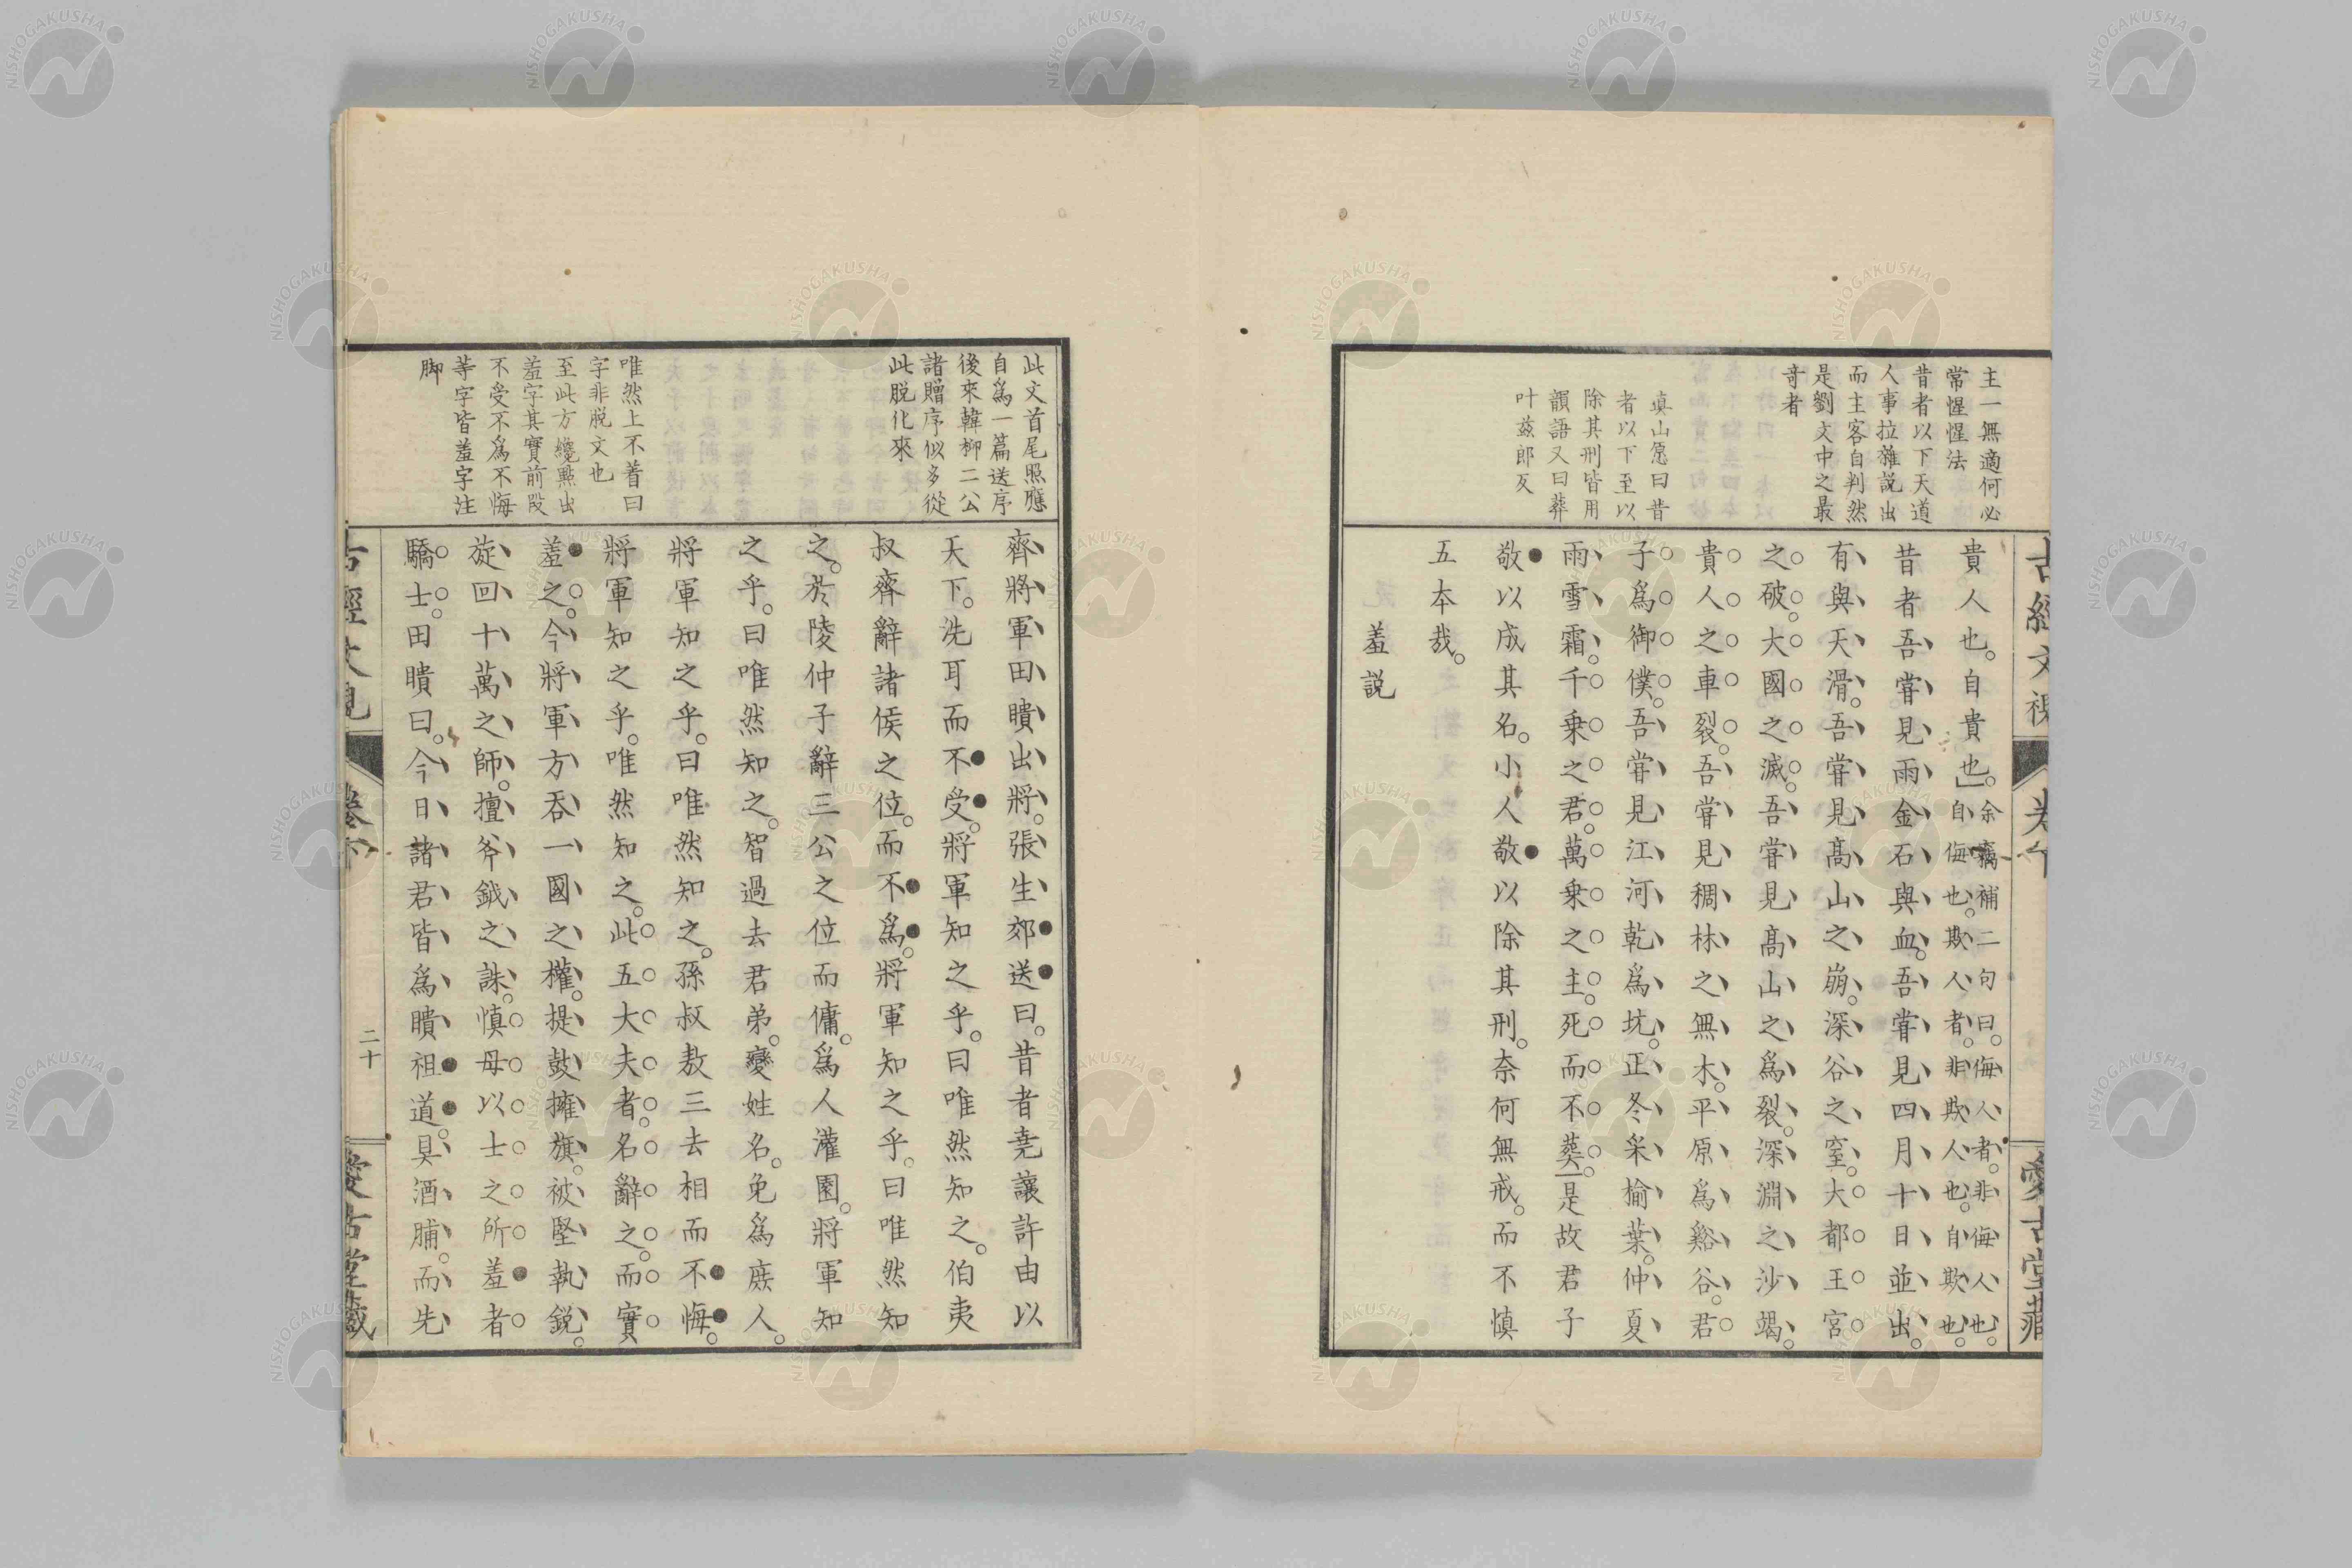 主一無適何必
常惺惺法
昔者以下天道
人事拉雜説出
而主客自判然
是劉文中之最
竒者
眞山愿曰昔
者以下至以
除其刑皆用
韻語又曰葬
叶茲郎反
貴人也。自貴也。余竊補二句曰。侮人者。非侮人也。
自侮也。欺人者。非欺人也。自欺也。
昔者吾甞見雨金石與血。吾甞見四月十日並出。
有與天滑。吾甞見髙山之崩。深谷之窒。大都王宮
之破。大國之滅。吾甞見髙山之爲裂。深淵之沙竭。
貴人之車裂。吾甞見稠林之無木。平原爲谿谷。君
子爲御僕。吾甞見江河乾爲坑。正冬采榆葉。仲夏
雨雪霜。千乗之君。萬乗之主。死而不葬。是故君子
敬以成其名。小人敬以除其刑。奈何無戒。而不愼
五本哉。
羞説
愛古堂藏
此文首尾照應
自爲一篇送序
後來韓柳二公
諸贈序似多從
此脱化來
唯然上不着曰
字非脱文也
至此方纔㸃出
羞字其實前段
不受不爲不悔
等字皆羞字注
脚
齊將軍田聵出將。張生郊送曰。昔者堯讓許由以
天下。洗耳而不受。將軍知之乎。曰唯然知之。伯夷
叔齊辭諸侯之位。而不爲。將軍知之乎。曰唯然知
之。於陵仲子辭三公之位而傭。爲人灌園。將軍知
之乎。曰唯然知之。智過去君弟。變姓名。免爲庶人。
將軍知之乎。曰唯然知之。孫叔敖三去相而不悔。
將軍知之乎。唯然知之。此五大夫者。名辭之。而實
羞之。今將軍方吞一國之權。提鼓擁旗。被堅執鋭。
旋回十萬之師。擅斧鉞之誅。愼毋以士之所羞者
驕士。田聵曰。今日諸君皆爲聵祖道。具酒脯。而先
二十